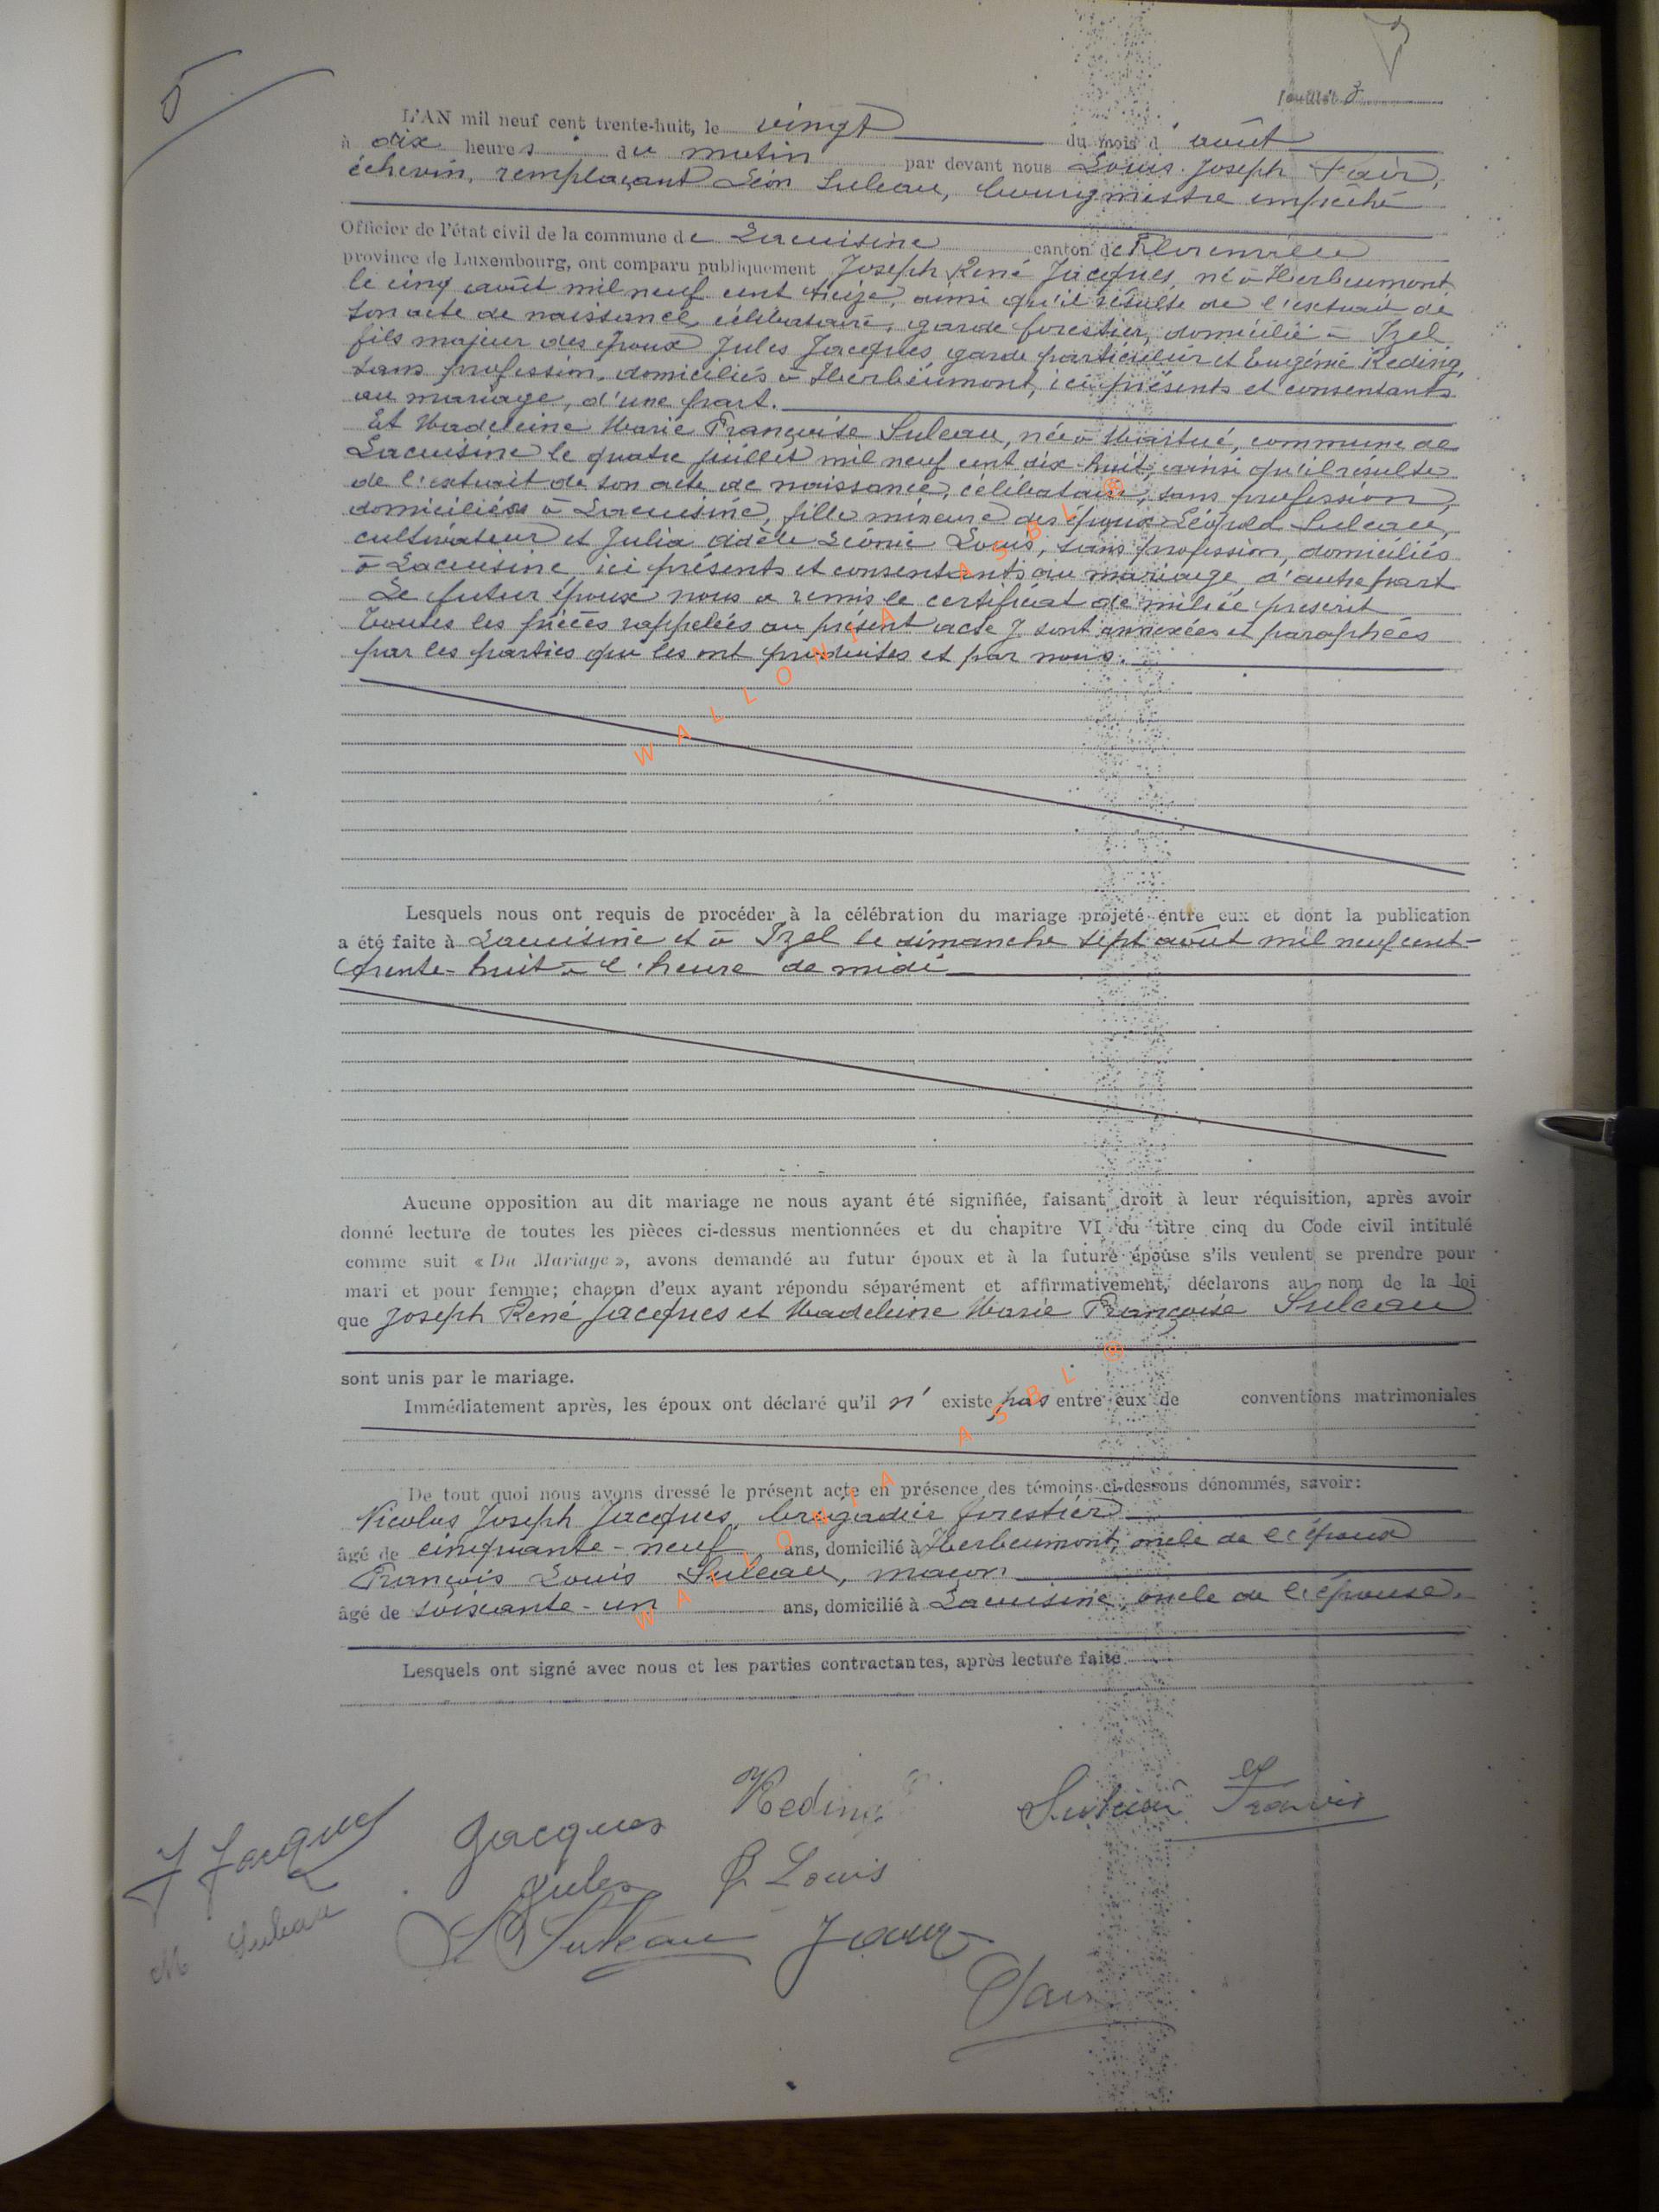 5
feuillet 3
L'AN mil neuf cent trente-huit, le vingt du mois d'août
à dix heures du matin par devant nous Louis Joseph Fair,
échevin, remplaçant Léon Suleau, bourgmestre empêché
Officier de l'état civil de la commune de Lacuisine canton de Florenville
province de Luxembourg, ont comparu publiquement Joseph René Jacques, né à Herbeumont
le cinq août mil neuf cent treize, ainsi qu'il résulte de l'extrait de
son acte de naissance, célibataire, garde forestier, domicilié à Izel
fils majeur des époux Jules Jacques, garde particulier et Eugénie Reding,
sans profession, domiciliés à Herbeumont, ici présents et consentants
au mariage, d'une part.
Et Madeleine Marie Françoise Suleau, née à Martué, commune de
Lacuisine le quatre juillet mil neuf cent dix-huit, ainsi qu'il résulte
de l'extrait de son acte de naissance, célibataire, sans profession,
domiciliée à Lacuisine, fille mineure des époux Léopold Suleau,
cultivateur et Julia Adèle Léonie Louis, sans profession, domiciliés
à Lacuisine ici présents et consentants au mariage d'autre part
Le futur époux nous a remis le certificat de milice prescrit
Toutes les pièces rappelées au présent acte y sont annexées et paraphées
par les parties qui les ont produites et par nous.
WALLONIA ASBL ®
Lesquels nous ont requis de procéder à la célébration du mariage projeté entre eux et dont la publication
a été faite à Lacuisine et à Izel le dimanche sept août mil neuf cent-
trente-huit à l'heure de midi
Aucune opposition au dit mariage ne nous ayant été signifiée, faisant droit à leur réquisition, après avoir
donné lecture de toutes les pièces ci-dessus mentionnées et du chapitre VI du titre cinq du Code civil intitulé
comme suit « Du Mariage », avons demandé au futur époux et à la future épouse s'ils veulent se prendre pour
mari et pour femme; chacun d'eux ayant répondu séparément et affirmativement, déclarons au nom de la loi
que Joseph René Jacques et Madeleine Marie Françoise Suleau
sont unis par le mariage.
Immédiatement après, les époux ont déclaré qu'il n'existe pas entre eux de conventions matrimoniales
De tout quoi nous avons dressé le présent acte en présence des témoins ci-dessous dénommés, savoir:
Nicolas Joseph Jacques, brigadier forestier
âgé de cinquante-neuf ans, domicilié à Herbeumont, oncle de l'époux
François Louis Suleau, maçon
âgé de soixante-un ans, domicilié à Lacuisine, oncle de l'épouse.
WALLONIA ASBL ®
Lesquels ont signé avec nous et les parties contractantes, après lecture faite.
J Jacques
Jacques
Jules
Reding
Suleau François
M Suleau
L Suleau
J Louis